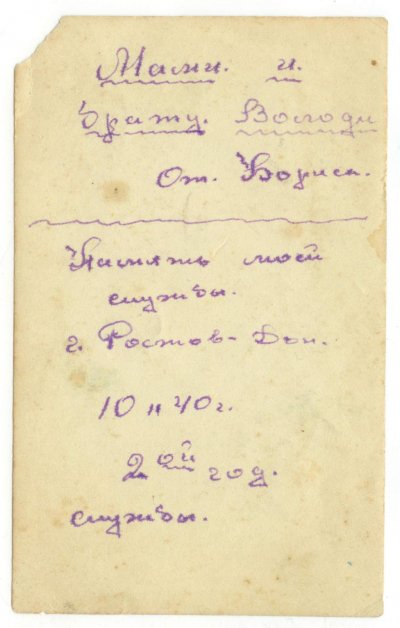 Мами. и.
брату. Володи
От. Бориса.
Память моей
службы.
г. Ростов-Дон.
10 н 40 г.
2ой год.
службы.